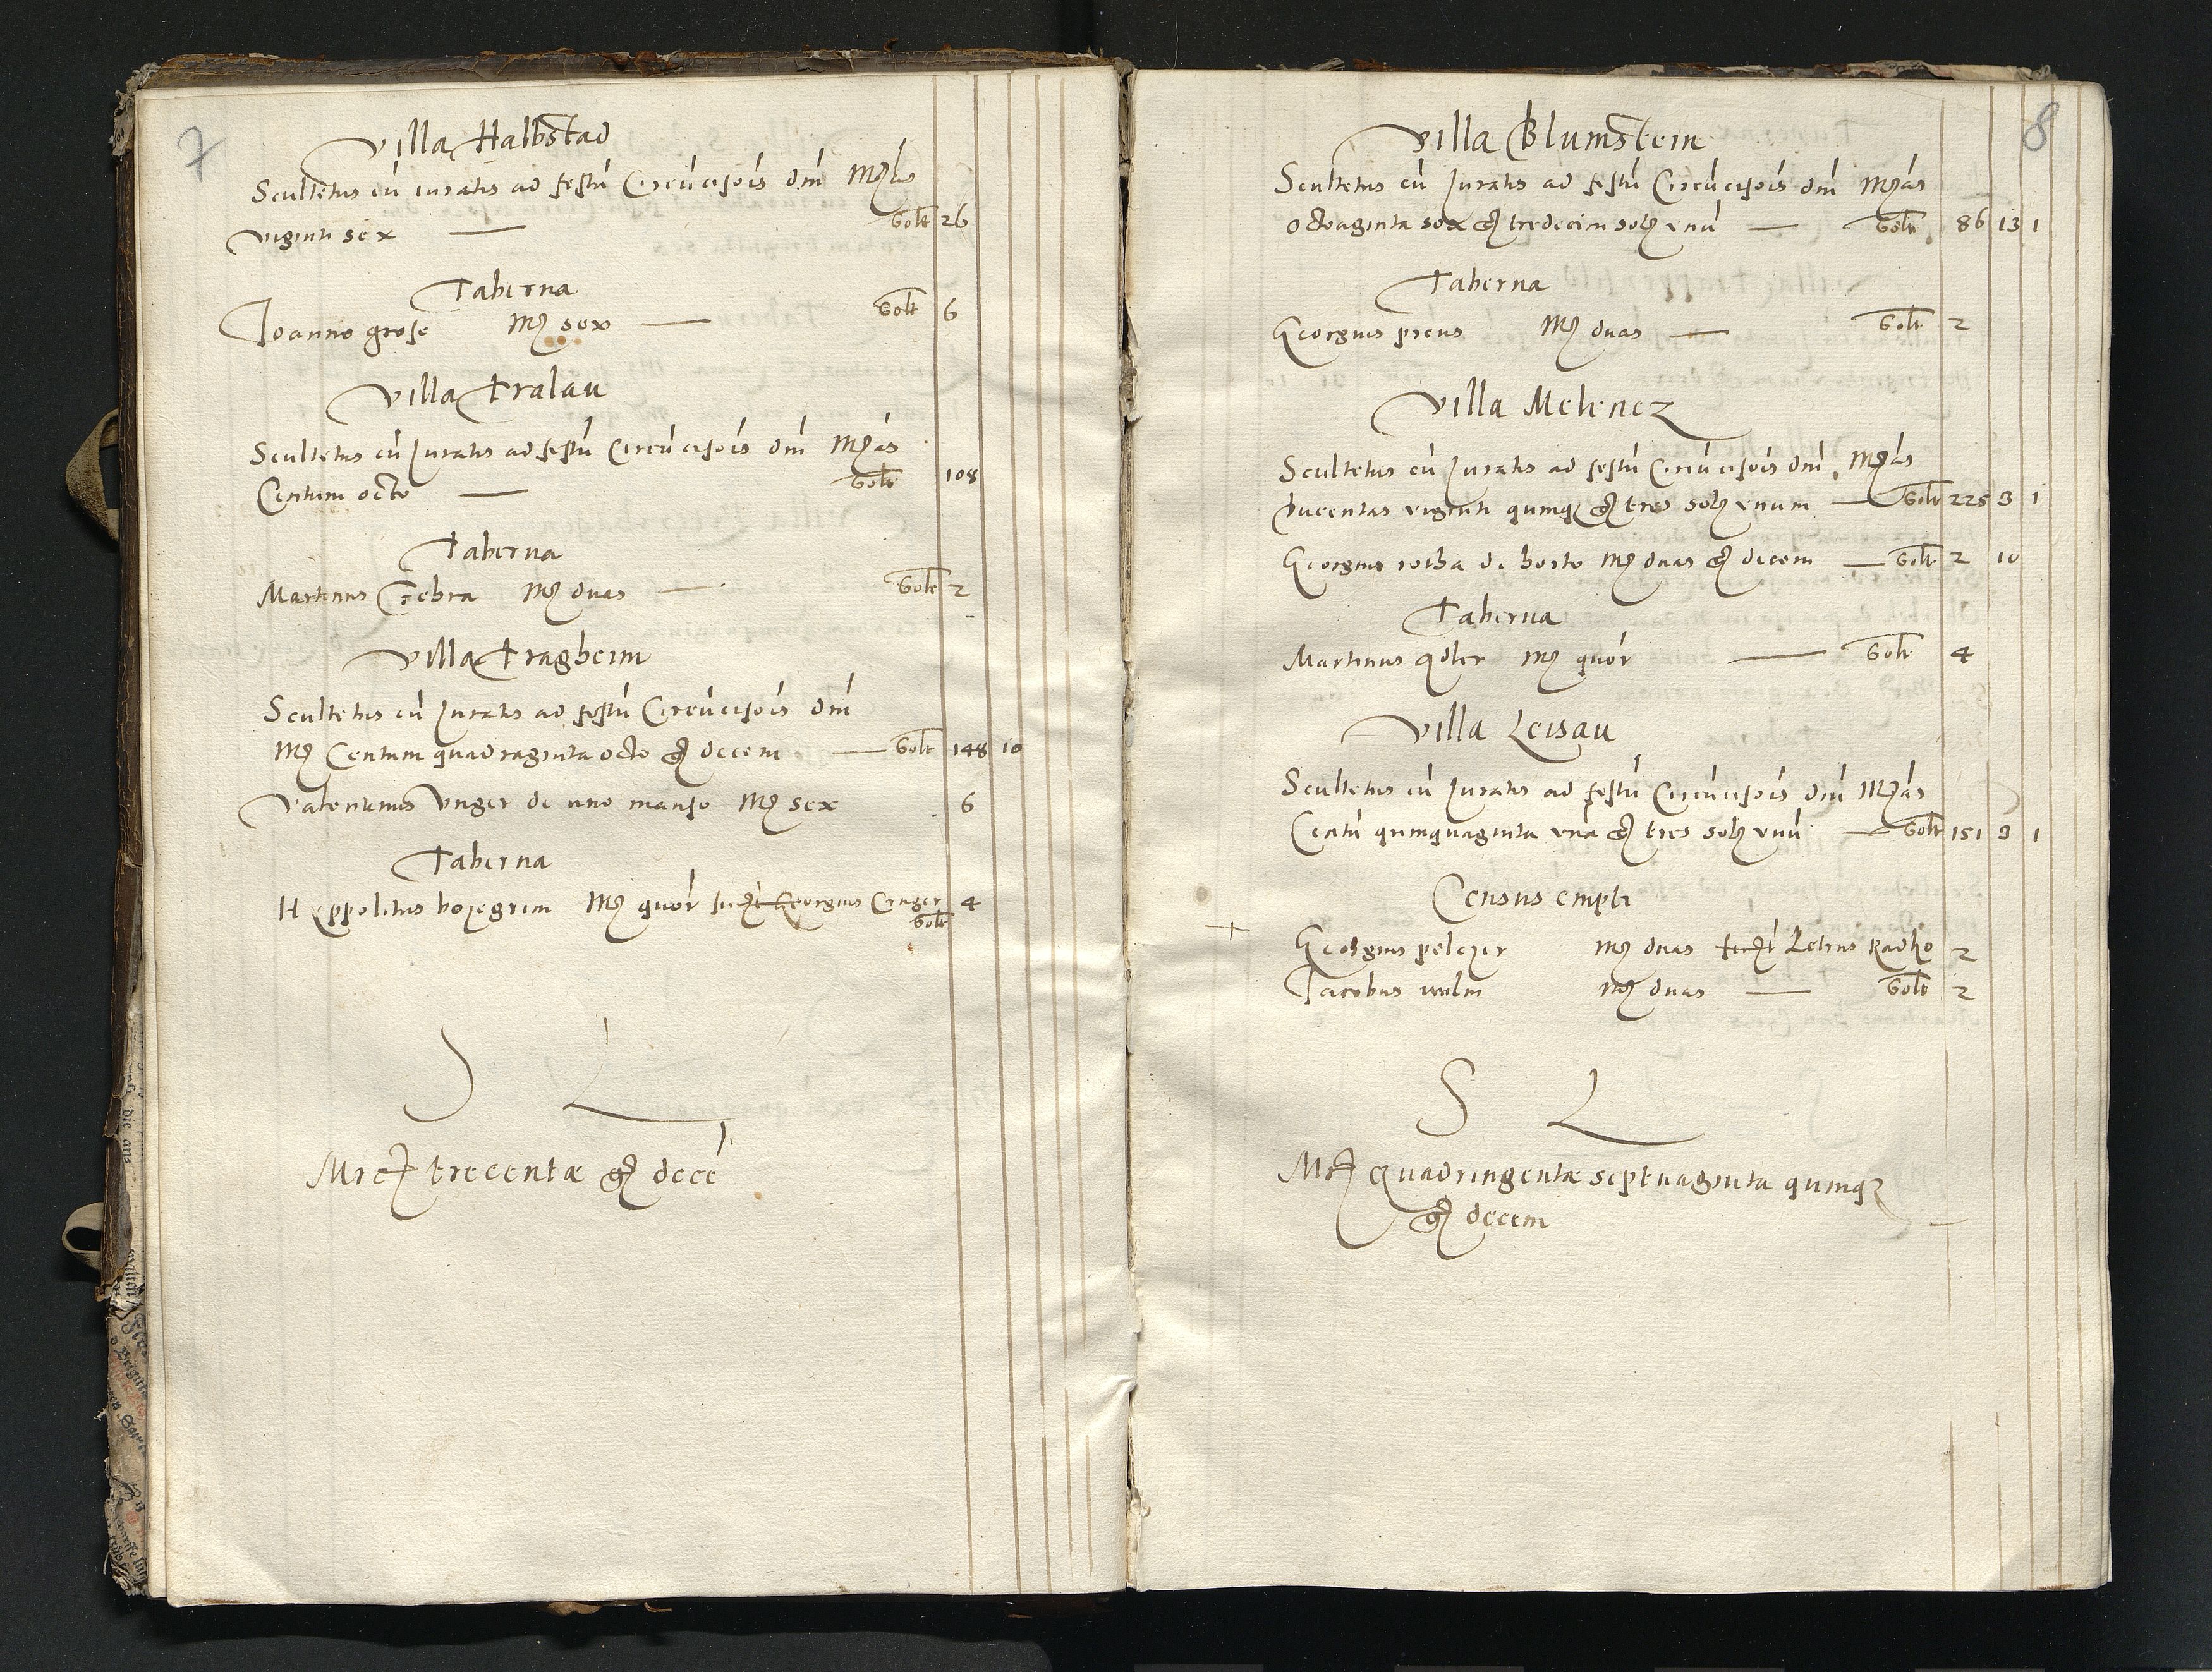 7
Villa Halbstad
Scultetus cū iuratis ad festū Circūcisiōis dnī Mr̄as
viginti sex — Solt 26
Taberna
Joannes grose Mr̄ sex — Solt 6
Villa Tralau
Scultetus cū Juratis ad festū Circūcisiōis dnī Mr̄as
Centum octo — Solt 108
Taberna
Martinus Mr̄ duas — Solt 2
Villa Tragheim
Scultetus cū Juratis ad festū Circūcisiōis dnī
Mr̄ Centum quadraginta octo gr̄ decem — Solt 148 10
Valentinus Vnger de uno manso Mr̄ sex 6
Taberna
Hyppolitus Mr̄ quōr Georgius Cruger 4
Solt
S L
Mrc̄ trecentæ gr̄ decē
8
Villa Blumstein
Scultetus cū Juratis ad festū Circūcisiōis dnī Mr̄as
octoaginta sex gr̄ tredecim sol̄ vnū — Solt 86 13 1
Taberna
Georgius preus Mr̄ duas — Solt 2
Villa Melenez
Scultetus cū Juratis ad festū Circūcisiōis dnī Mr̄as
ducentas viginti quinqȝ gr̄ tres sol̄ vnum — Solt 225 3 1
Georgius rotha de horto Mr̄ duas gr̄ decem — Solt 2 10
Taberna
Martinus Mr̄ quōr — Solt 4
Villa Leisau
Scultetus cū Juratis ad festū Circūcisiōis dnī Mr̄as
Centū quinquaginta vna gr̄ tres sol̄ vnū — Solt 151 3 1
Census empti
+ Georgius pelczer Mr̄ duas 2
Jacobus Mr̄ duas — Solt 2
S L
Mr̄ Quadringentæ septuaginta quinqȝ
gr̄ decem